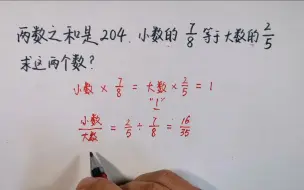 两数之和是204.小数的 7/8 等于大数的 2/5
求这两个数?
小数 × 7/8 = 大数 × 2/5 = 1
"1"
小数/大数 = 2/5 ÷ 7/8 = 16/35